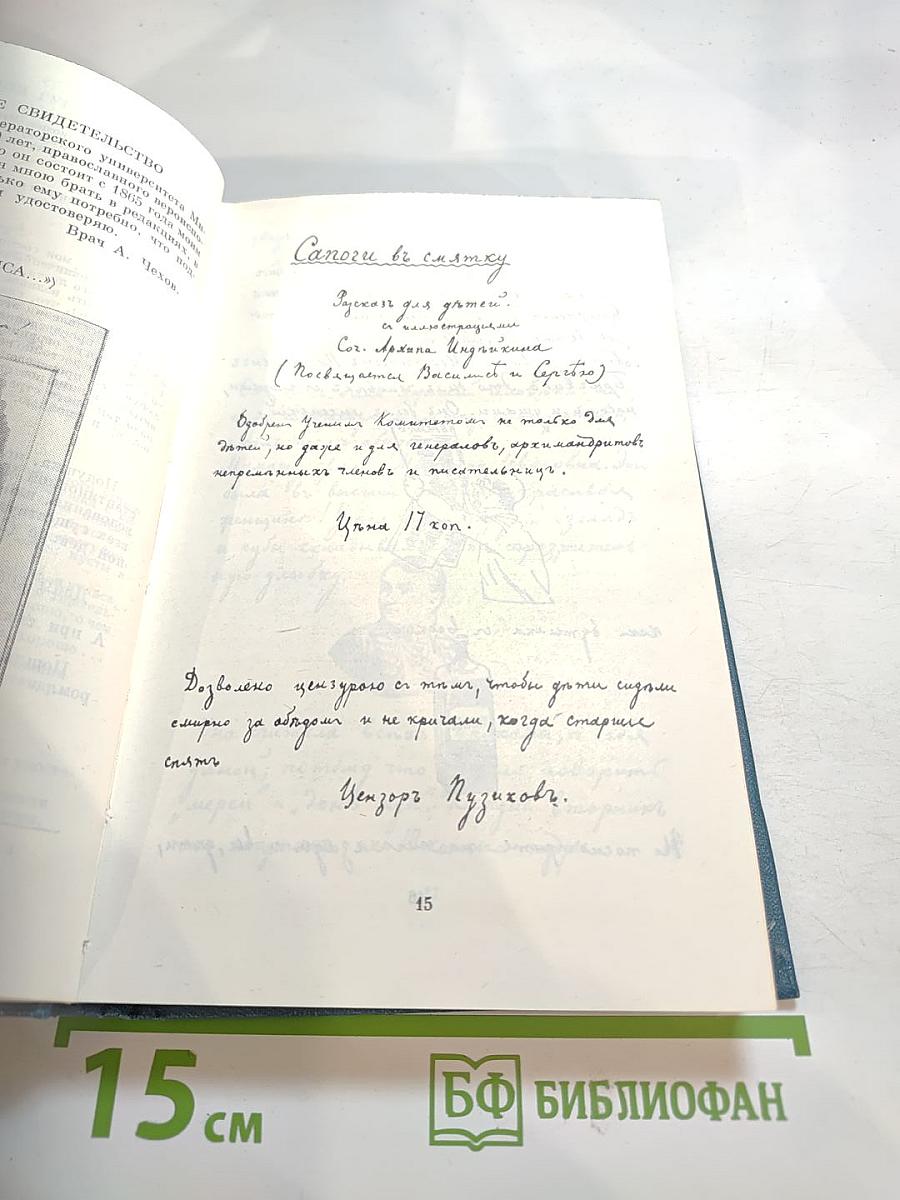 Е СВИДЕТЕЛЬСТВО
ераторского университета
лет, православного вероиспо-
о он состоит с 1865 года моим
я мною брать в редакциях, в
ько ему потребно, что под-
удостоверяю.
Врач А. Чехов.
ИСА...»)
Сапоги въ смятку
Разсказъ для дѣтей.
съ иллюстрацiями
Соч. Архипа Индѣйкина
(Посвящается Василисѣ и Сергѣю)
Одобренъ Ученымъ Комитетомъ не только для
дѣтей, но даже и для генераловъ, архимандритовъ
непремѣнныхъ членовъ и писательницъ.
Цѣна 17 коп.
Дозволено цензурою съ тѣмъ, чтобы дѣти сидѣли
смирно за обѣдомъ и не кричали, когда старшiе
спятъ
Цензоръ Пузиковъ.
15
15 см
БФ БИБЛИОФАН